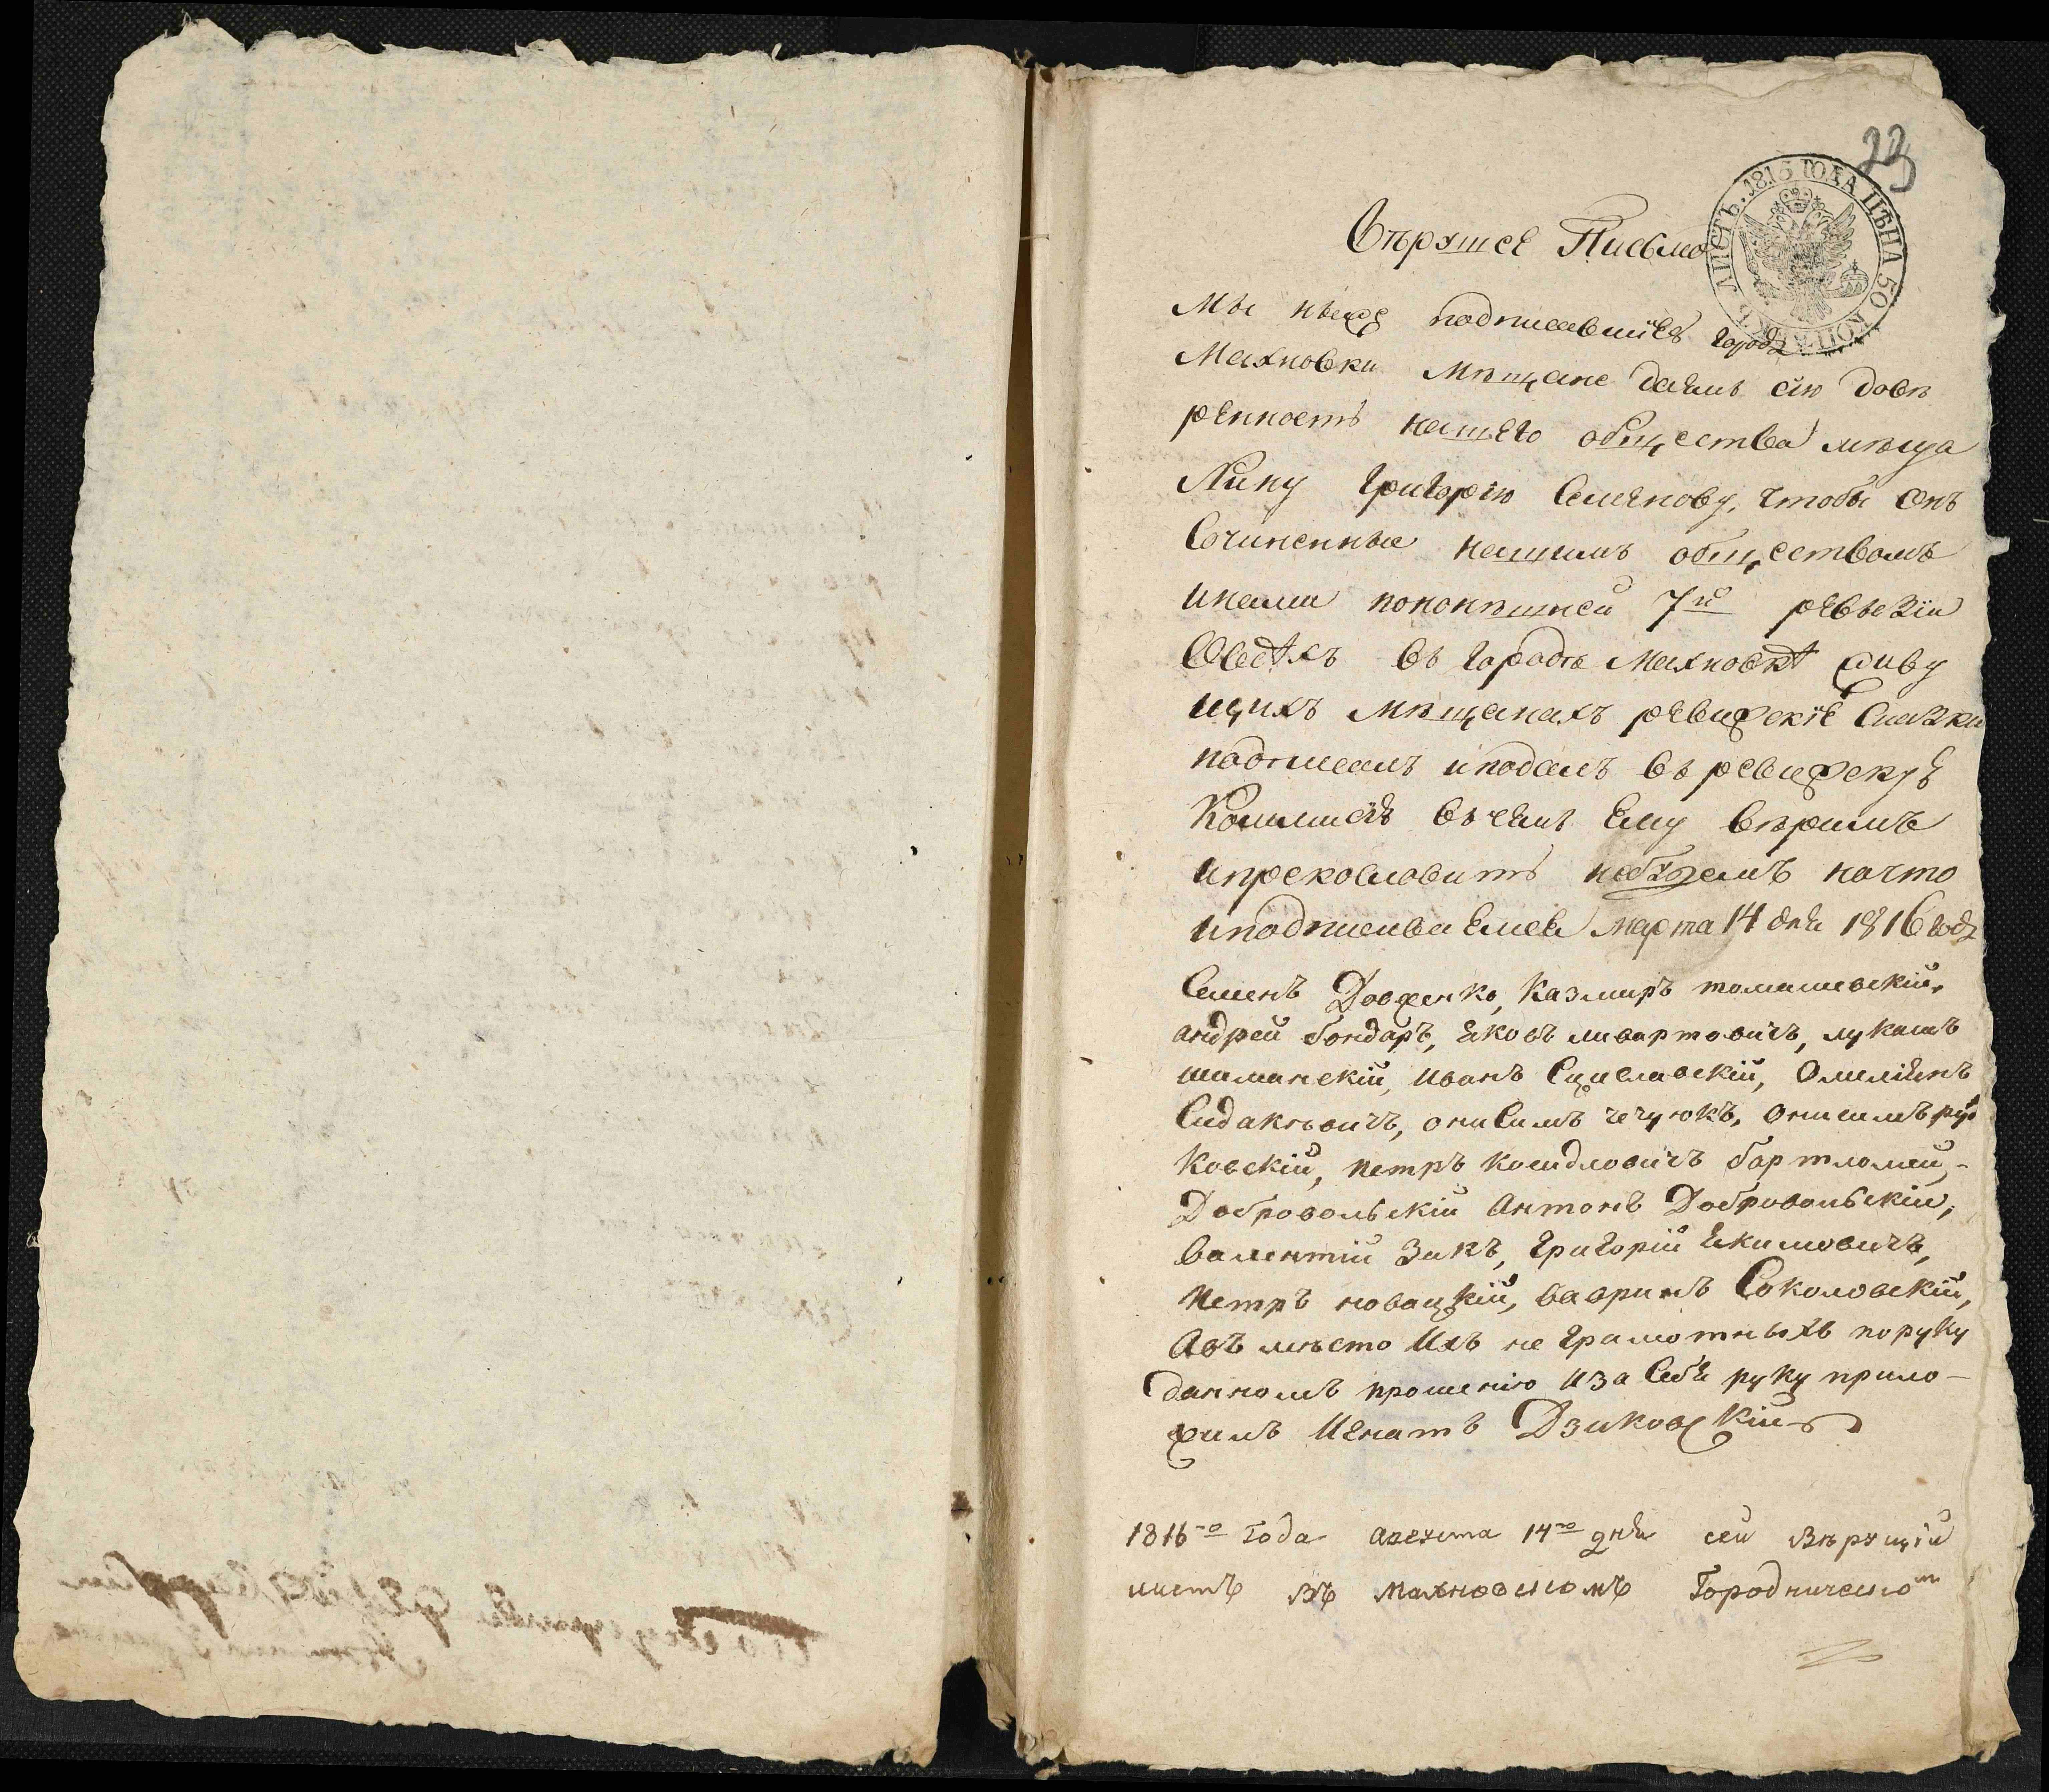 23
ЛИСТЪ. 1816 ГОДА ЦѢНА 50 КОПѢЕКЪ
Вѣрущее Письмо
Мы ниже подписавшіеся города
Махновки мѣщане даемъ сію довѣ
ренность нашего общества мѣща
нину Григорію Семенову, чтобы онъ
Сочиненные нашимъ обществомъ
инами пононѣшней 7й ревезіи
Овсѣхъ въ городѣ Махновкѣ живу
щихъ мѣщанахъ ревижскіе Сказки
подписалъ иподалъ въ ревижскую
Комисію въчемъ Ему вѣримъ
ипрекословить небудемъ начто
иподписиваемся марта 14 дня 1816 года
Семенъ Довженко, Казмиръ томашевскій,
андрей бондаръ, яковъ ливартовичъ, лукашъ
шиманскій, иванъ Сциславскій, Омелянъ
Сидакѣвичъ, онисимъ чечукъ, онисимъ рут
ковскій, петръ коендловичъ бартломей,-
Добровольскій Антонъ Добровольскій,
валентій Закъ, григорій якимовичъ,
петръ новацкій, вавринъ Соколовскій,
Авъ мѣсто Ихъ не грамотныхъ поруку
данномъ прошенію иза Себя руку прило-
жилъ Игнатъ Дзиковскій
1816го года августа 14го дня сей вѣрущій
листъ въ махновскомъ Городническом